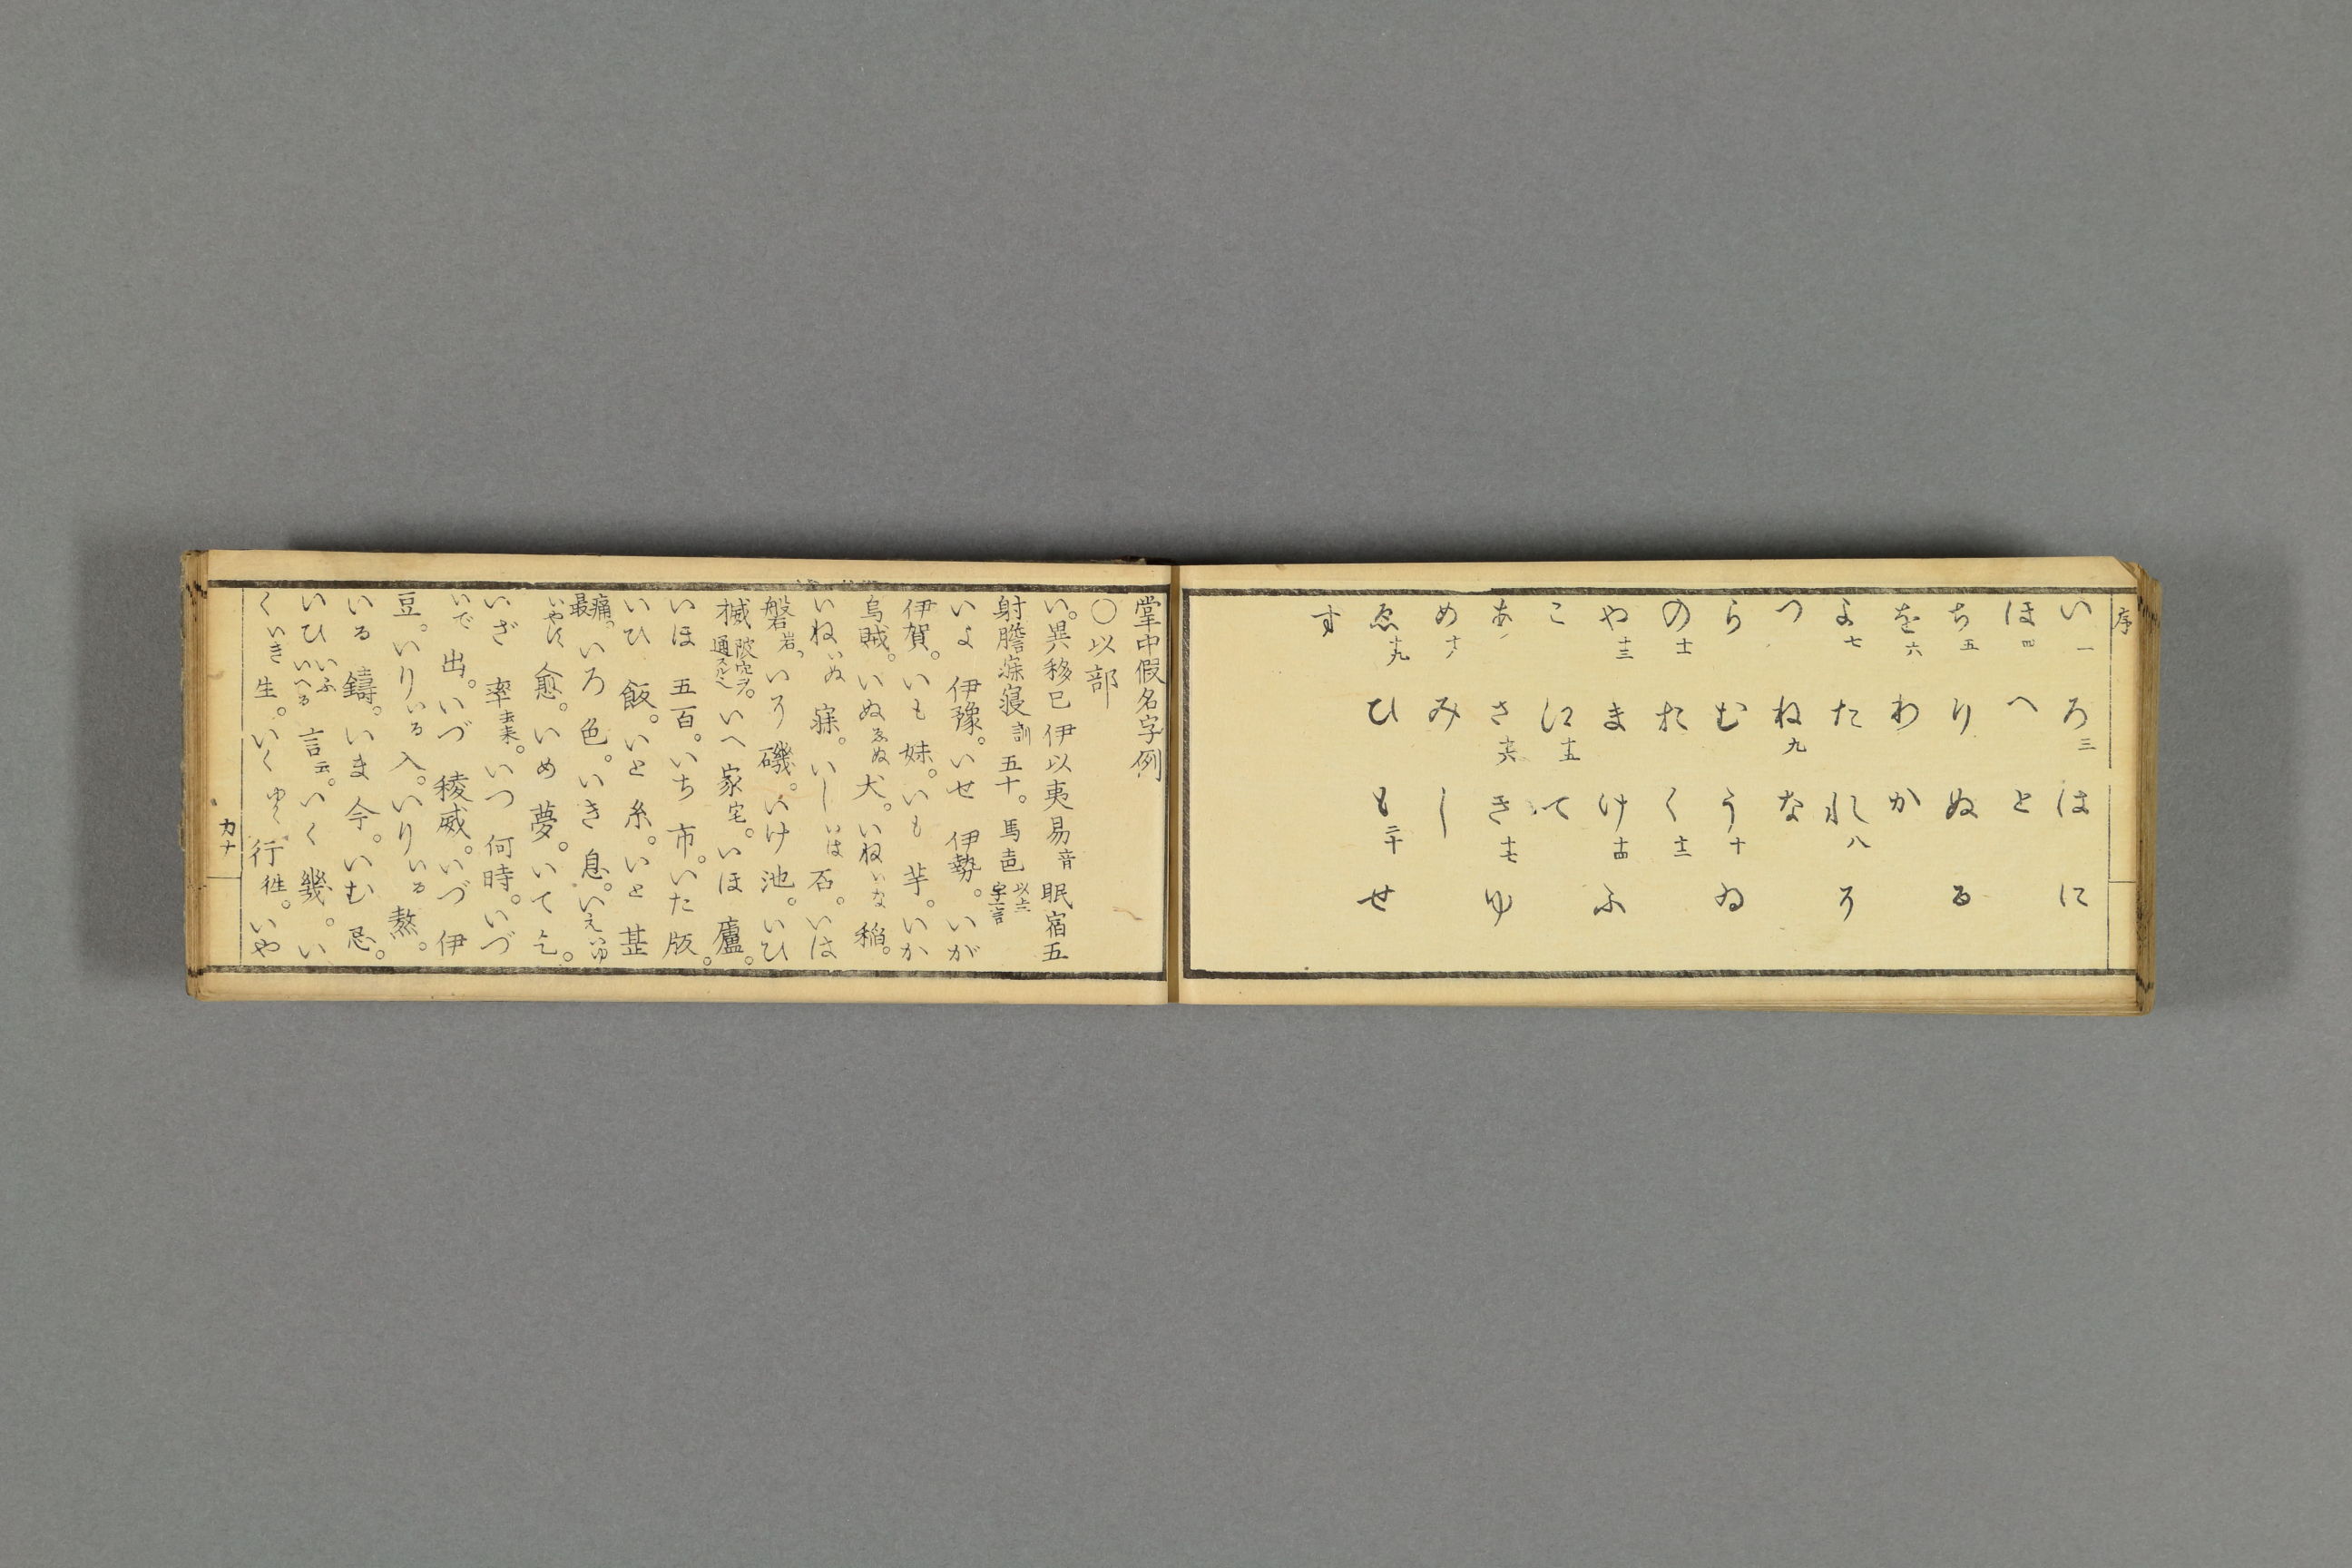 序
い一 ろ三 は に
ほ四 へ と
ち五 り ぬ る
を六 わ か
よ七 た れ八 そ
つ ね九 な
ら む う十 ゐ
の十一 お く十二
や十三 ま け十四 ふ
こ え十五 て
あ さ十六 き十七 ゆ
め十八 み し
ゑ十九 ひ も二十 せ
す
掌中假名字例
〇以部
い。異移已 伊以夷易音 眠宿五
射膽寐寝訓 五十。馬声 以上二字一言
いよ 伊豫。いせ 伊勢。いが
伊賀。いも 妹。いも 芋。いか
烏賊。いぬ ゑぬ 犬。いね いな 稲。
いね いぬ 寐。いし いは 石。いは
磐 岩。いそ 磯。いけ 池。いひ
楲 陂穴ヲ通スルヘ。いへ 家 宅。いほ 廬。
いほ 五百。いち 市。いた 版。
いひ 飯。いと 糸。いと 甚
最 痛。いろ 色。いき 息。いえ いゆ
いやす 愈。いめ 夢。いて 乞。
いざ 率 去来。いつ 何時。いづ
いで 出。いづ 稜威。いづ 伊
豆。いり いる 入。いり いる 熬。
いる 鑄。いま 今。いむ 忌。
いひ いふ いへる 言 云。いく 幾。い
く いき 生。いく ゆく 行 徃。いや
カナ